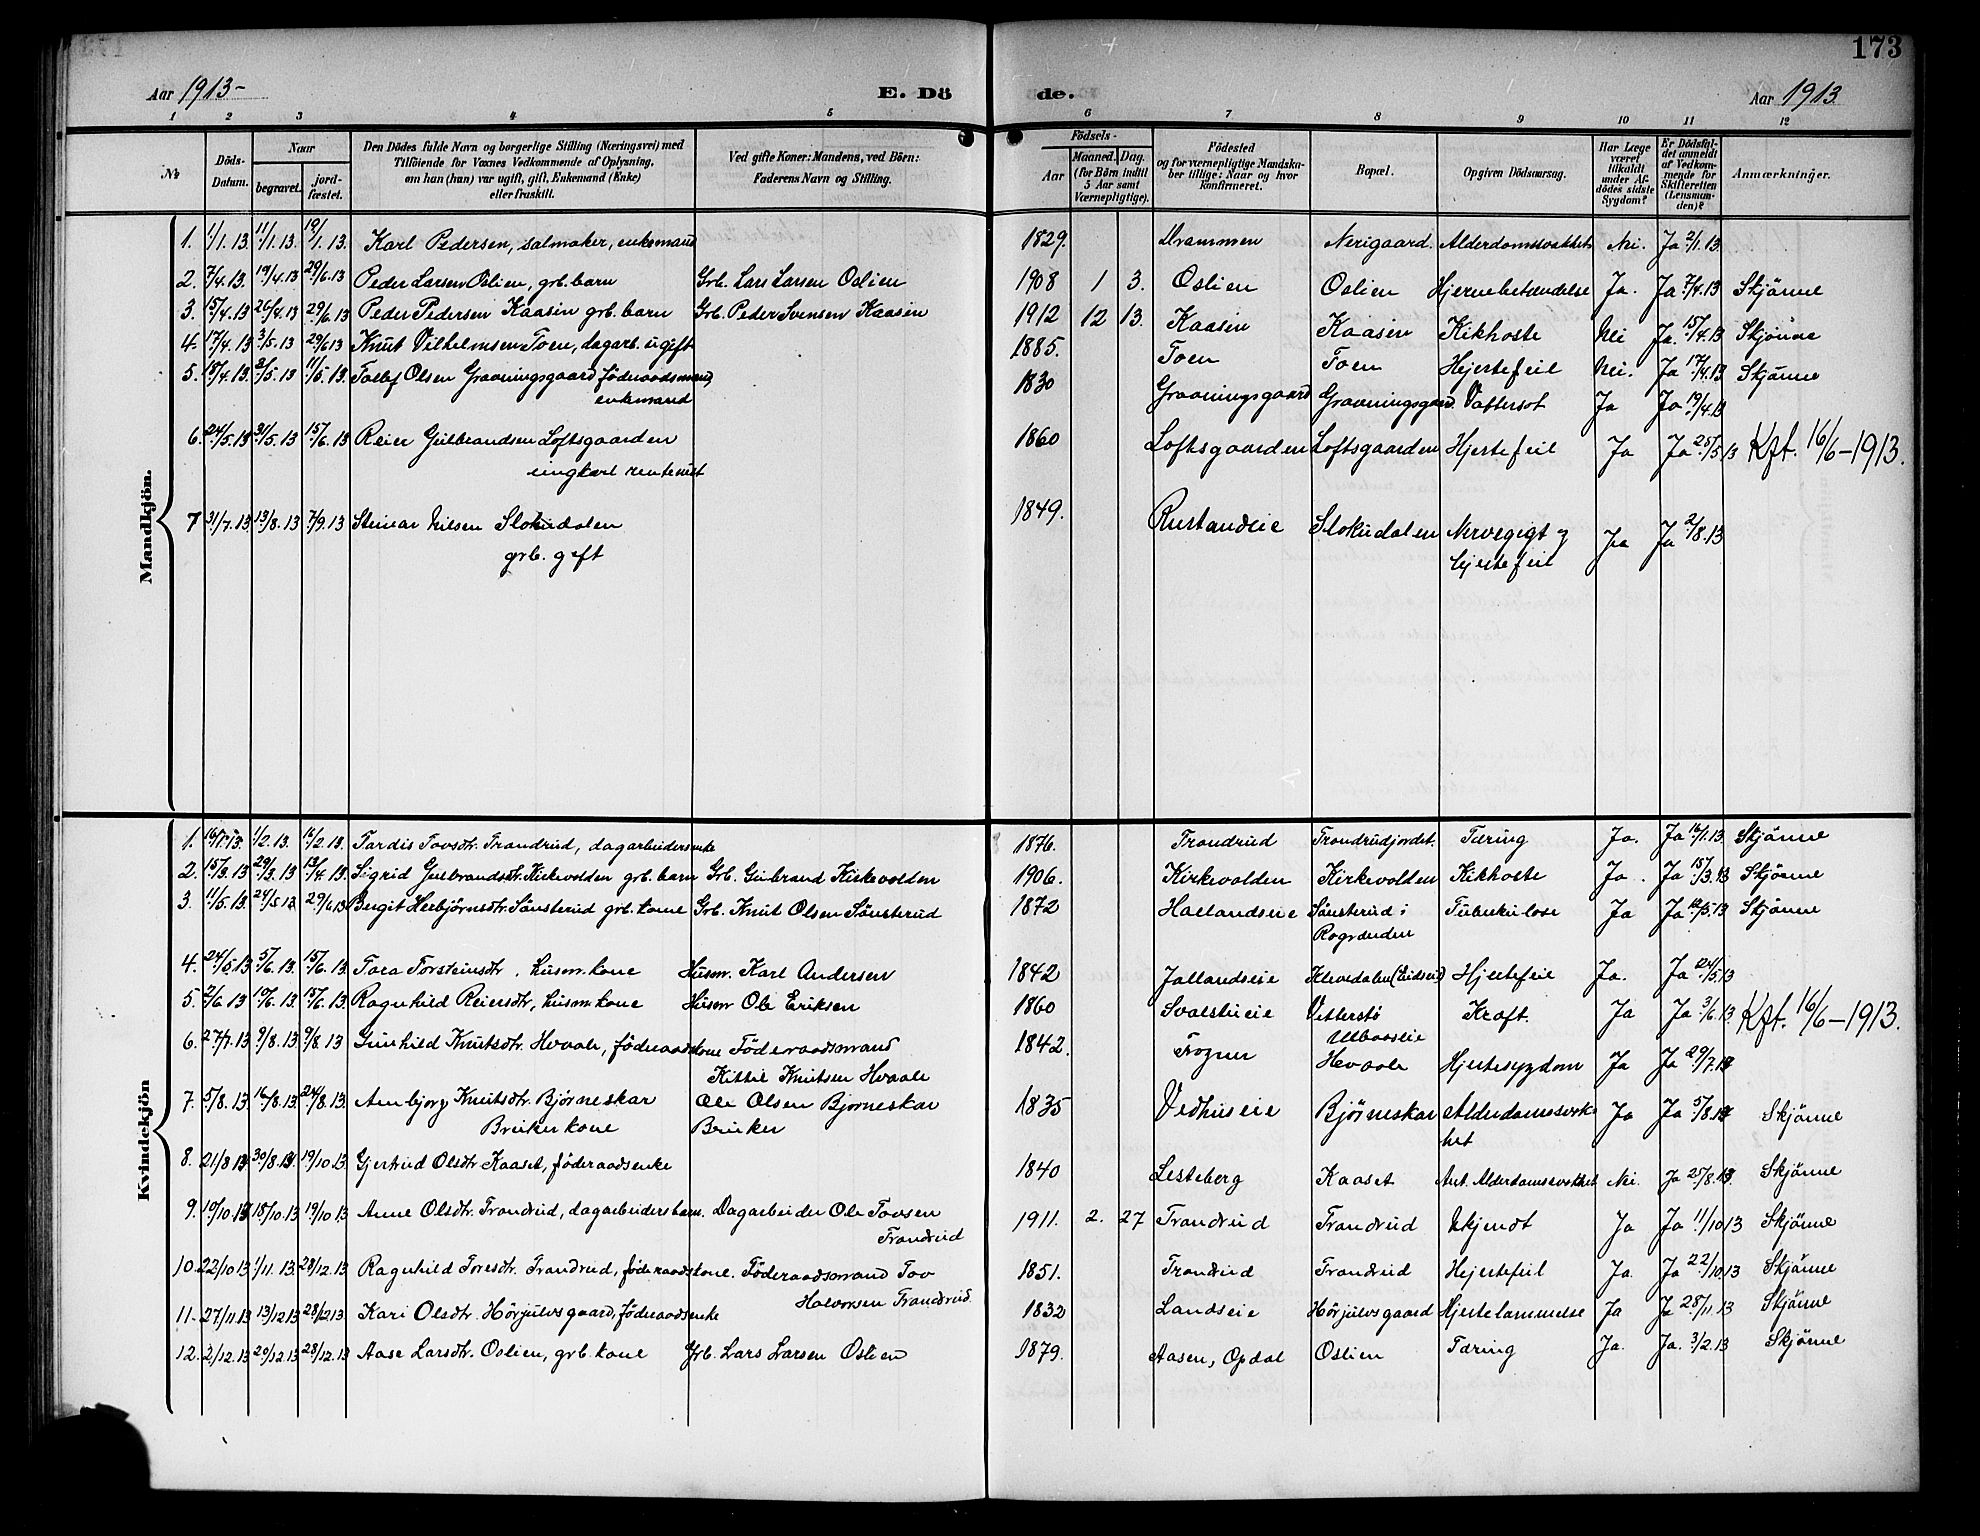 173
Aar 1913-
E. Dö
de.
Aar 1913
1 2 3 4 5 6 7 8 9 10 11 12
No
Döds-
Datum.
Naar
begravet.
jord-
fæstet.
Den Dödes fulde Navn og borgerlige Stilling (Næringsvei) med
Tilföiende for Voxnes Vedkommende af Oplysning,
om han (hun) var ugift, gift, Enkemand (Enke)
eller fraskilt.
Ved gifte Koner: Mandens, ved Börn:
Faderens Navn og Stilling.
Födsels-
Aar
Maaned. Dag.
(for Börn indtil
5 Aar samt
Værnepligtige).
Födested
og for værnepligtige Mandska-
ber tillige: Naar og hvor
konfirmeret.
Bopæl.
Opgiven Dödsaarsag.
Har Læge
været
tilkaldt
under Af-
dödes sidste
Sygdom?
Er Dödsfal-
det anmeldt
af Vedkom-
mende for
Skifteretten
(Lensman-
den)?
Anmærkninger.
Mandkjön.
1. 1/1.13. 11/1.13. 19/1.13. Karl Pedersen, salmaker, enkemand 1829. Drammen Nerigaard. Alderdomssvakhet Nei. Ja 2/1.13
2. 7/4.13. 19/4.13 29/6.13 Peder Larsen Oslien, grb. barn Grb. Lars Larsen Oslien 1908 1 3. Oslien Oslien Hjernebetændelse Ja. Ja 7/4.13 Skjönne
3. 15/4.13 26/4.13 29/6.13 Peder Pedersen Kaasin grb. barn Grb. Peder Svensen Kaasin 1912 12 13. Kaasin Kaasin Kikhoste Nei Ja. 15/4.13 Skjönne
4. 17/4.13 3/5.13 29/6 13 Knut Vilhelmsen Toen, dagarb. ugift 1885. Toen Toen Hjertefeil Nei. Ja 17/4.13 Skjönne
5. 18/4.13. 2/5.13 11/5.13. Tollef Olsen Graaningsgaard föderaadsmand
enkemand
1830 Graaningsgaard Graaningsgaard. Vattersot Ja Ja 19/4.13
6. 24/5.13 31/5.13 15/6.13 Reier Gulbrandsen Loftsgaarden
ungkarl rentenist
1860 Loftsgaarden Loftsgaarden Hjertefeil Ja Ja 25/5 13 Kft. 16/6-1913.
7 31/7.13 13/8.13 7/9.13 Steinar Nilsen Slokudalen
grb. gift
1849. Rustandeie Slokudalen Nervegigt og
hjertefeil
Ja Ja 2/8.13
Kvindekjön
1. 16/1.13. 1/2.13. 16/2.13. Tardis Tovsdtr. Frandrud, dagarbeidersenke 1876. Trondrud Trondrudjordet. Tæring Ja. Ja 16/1.13 Skjönne
2. 15/3.13 29/3.13 13/4.13. Sigrid Gulbrandsdtr. Kirkevolden grb. barn Grb. Gulbrand Kirkevolden 1906. Kirkevolden Kirkevolden Kikhoste Ja. Ja 15/3.13 Skjönne
3. 11/5.13. 24/5.13 29/6 13 Birgit Herbjörnsdtr. Sönsterud grb. kone Grb. Knut Olsen Sönsterud 1872 Haslandseie Sönsterud i
Rogndenden
Tuberkulose Ja Ja 12/5.13 Skjönne
4. 24/5.13 5/6.13. 15/6.13. Toea Torsteinsdtr., husm. kone Husm. Karl Andersen 1842 Jallandseie Klevedalen (Eidseie) Hjertefeil Ja. Ja 24/5.13
5. 2/6.13 10/6.13 15/6.13 Ragnhild Reiersdtr, husm. kone Husm Ole Eriksen 1860 Svolsueie Vetterstö
Ulbosseie
Kræft. Ja Ja 3/6.13. Kft. 16/6-1913.
6. 27/7.13 9/8.13. 9/8.13 Gunhild Knutsdtr. Hvaale, föderaadskone Föderaadsmand
Kittil Knutsen Hvaale
1842. Frogner Hvaale Hjertesygdom Ja Ja 29/7.13
7. 5/8.13. 16/8.13. 24/8.13. Ambjorg Knutsdtr. Björneskar
Bruker kone
Ole Olsen Bjorneskar
Bruker
1835 Vedhuseie Björneskar Alderdomssvak-
het
Ja Ja 5/8.13 Skjönne
8. 21/8.13. 30/8.13. 19/10.13. Gjertrud Olsdtr. Kaaset, föderaadsenke 1840 Lesteberg Kaaset Ant. Alderdomssvakhet Nei. Ja 25/8.13. Skjönne
9. 10/10.13 18/10.13 19/10 13 Anne Olsdtr. Frandrud, dagarbeidersbarn. Dagarbeider Ole Tovsen
Frandrud
1911. 2. 27 Trandrud Trandrud Ukjendt Ja Ja 11/10 13 Skjönne
10. 22/10 13 1/11.13. 28/12.13. Ragnhild Toresdtr. Trandrud, föderaadskone. Föderaadsmand Tov
Halvorsen Trandrud
1851. Trondrud Trondrud Hjertefeil Ja. Ja 22/10.13 Skjönne
11. 27/11.13 13/12 13 28/12 13. Kari Olsdtr. Hörjulvsgaard, föderaadsenke 1832 Landseie Hörjulvsgaard Hjertelammelse Ja Ja 28/11.13 Skjönne
12. 2/12.13 20/12.13 28/12.13 Aase Larsdtr. Oslien, grb. kone Grb. Lars Larsen Oslien 1879. Aasen, Opdal Oslien Tæring Ja. Ja. 3/2.13 Skjönne